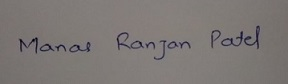 Manas Ranjan Patel